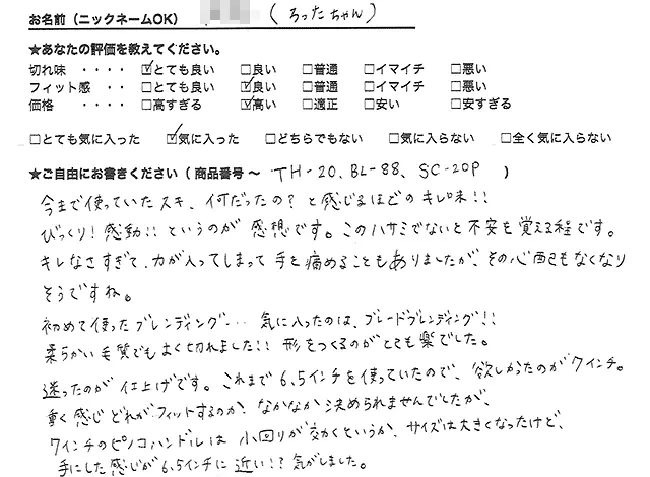 お名前（ニックネームOK）（ろったちゃん）
★あなたの評価を教えてください。
切れ味 ・・・・ ☑とても良い □良い □普通 □イマイチ □悪い
フィット感 ・・ □とても良い ☑良い □普通 □イマイチ □悪い
価格 ・・・・ □高すぎる ☑高い □適正 □安い □安すぎる
□とても気に入った ☑気に入った □どちらでもない □気に入らない □全く気に入らない
★ご自由にお書きください（商品番号～ TH-20、BL-88、SC-20P ）
今まで使っていたスキ、何だったの？と感じるほどのキレ味！！
びっくり！感動！！というのが感想です。このハサミでないと不安を覚える程です。
キレなさすぎて、力が入ってしまって手を痛めることもありましたが、その心配もなくなり
そうですね。
初めて使ったブレンディング…気に入ったのは、ブレードブレンディング！！
柔らかい毛質でもよく切れました！！形をつくるのがとても楽でした。
迷ったのが仕上げです。これまで6.5インチを使っていたので、欲しかったのが7インチ。
重く感じどれがフィットするのか、なかなか決められませんでしたが、
7インチのピノコハンドルは小回りが効くというか、サイズは大きくなったけど、
手にした感じが6.5インチに近い！？気がしました。